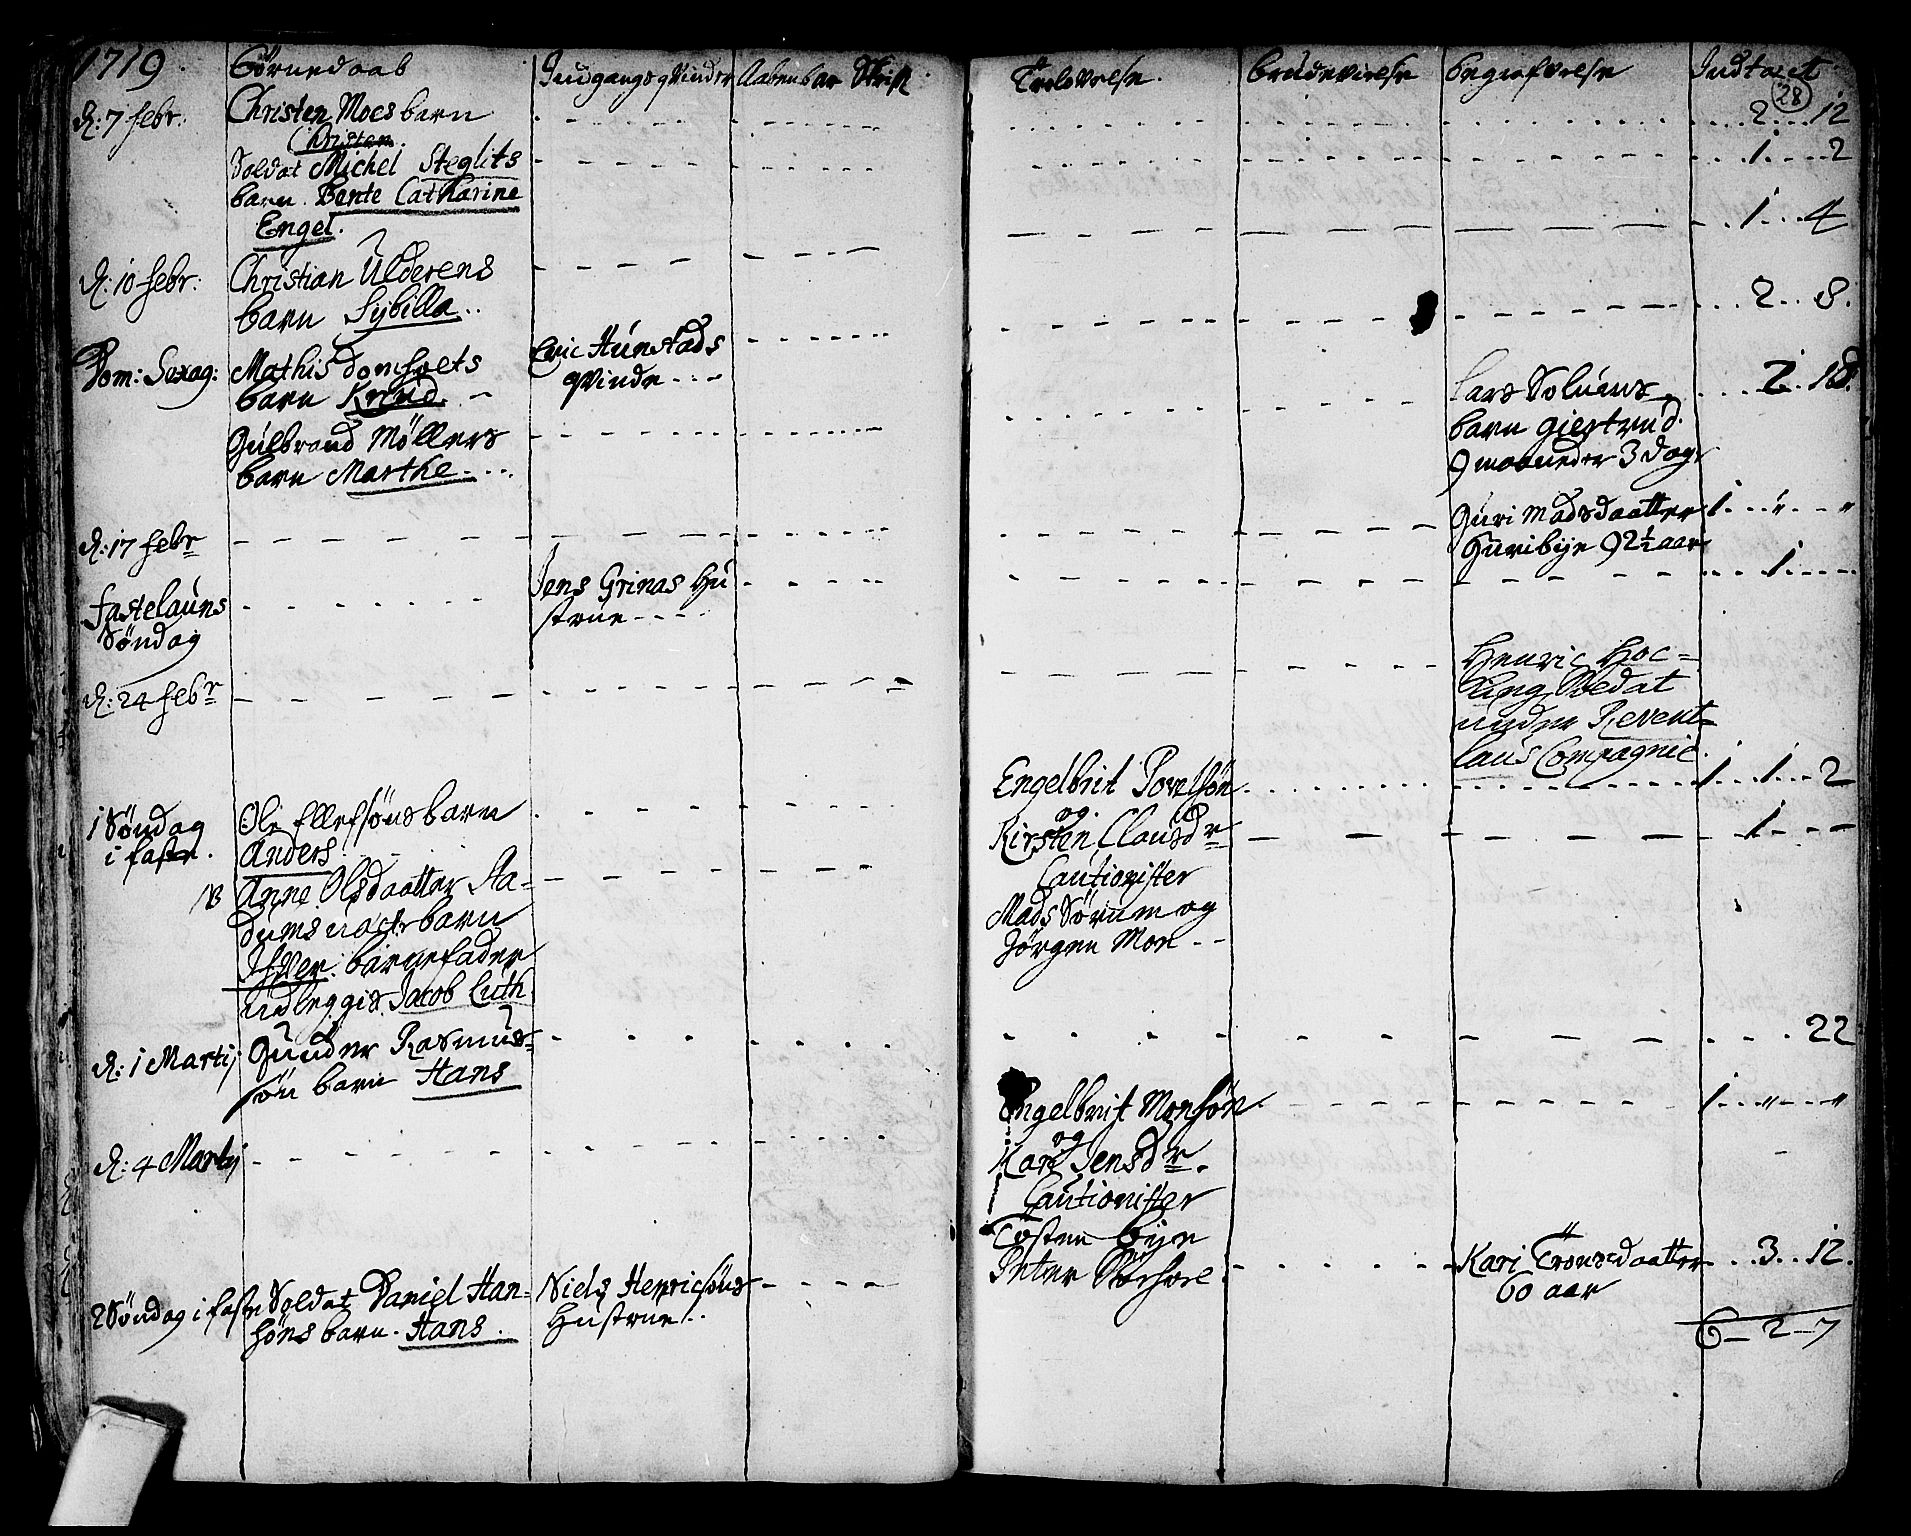 1719
Børnedaab
Indgangsqvinder
Aabenbar Skrift
Trolovelse.
Brudevielse
Begrafvelse
Indtægt
28
d: 7 febr:
Christen Moes barn
Christen.
2 12
Soldat Michel Steglits
barn. Bente Catharine
Engel.
1 2
1 4
d: 10 febr:
Christian Ulderens
barn Sybilla
2 8.
Dom: Sexag:
Mathis
barn Knud
Eric Hunstads
qvinde
Lars Solums
barn Giertrud.
9 maaneder 3 dage
2
Gulbrand Møllers
barn Marthe
d: 17 febr
Guri Madsdaatter
Huribye 92½ aar
1 " "
fastelauns
Søndag
Jens Grinas Hu
strue
1
d: 24 febr
Henric Hoc=
king Soldat
under Revent=
laus Compagnie.
1 Søndag
i faste.
Ole Ellefsøns barn
Anders.
Engelbrit Povelsøn
og.
Kirsten Clausdr
Cautionister
Mads Sørum og
Jørgen Moe
1 1 2
1
NB
Anne Olsdaatter Aa=
dums barn
Iffver. barnefader
udleggis Jacob Luth.
d: 1 Martij
Gunder Rasmus=
søn barn Hans
22
d: 4 Martij
Engelbrit Monsøn
og
Kari Jensdr.
Cautionister
Tosten Bye
Peter
1 " "
2 Søndag i faste
Soldat Daniel Han=
søns barn. Hans.
Niels Henricsøns
Hustrue.
Kari Tronsdaatter
60 aar
3 12.
6 2 7